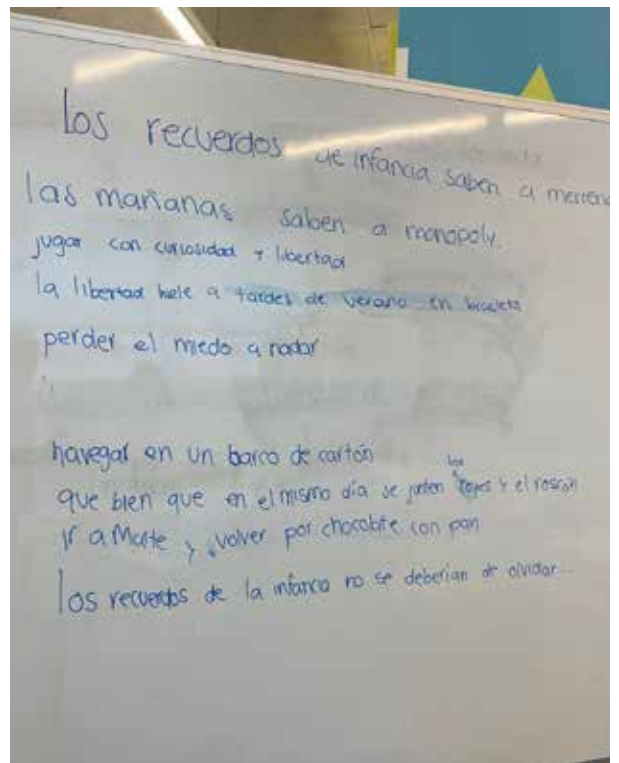 los recuerdos de infancia saben a meriend
las mañanas saben a monopoly.
jugar con curiosidad y libertad
la libertad hele a tardes de verano en bicicleta
perder el miedo a nadar
navegar en un barco de cartón
que bien que en el mismo día se junten los reyes y el roscón
ir a Marte y volver por chocolate con pan
los recuerdos de la infancia no se deberian de olvidar...